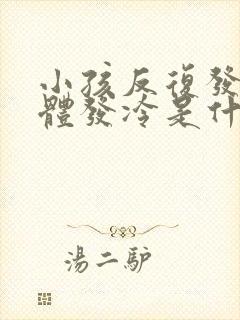 小孩反復發
體發冷是什
湯二驴